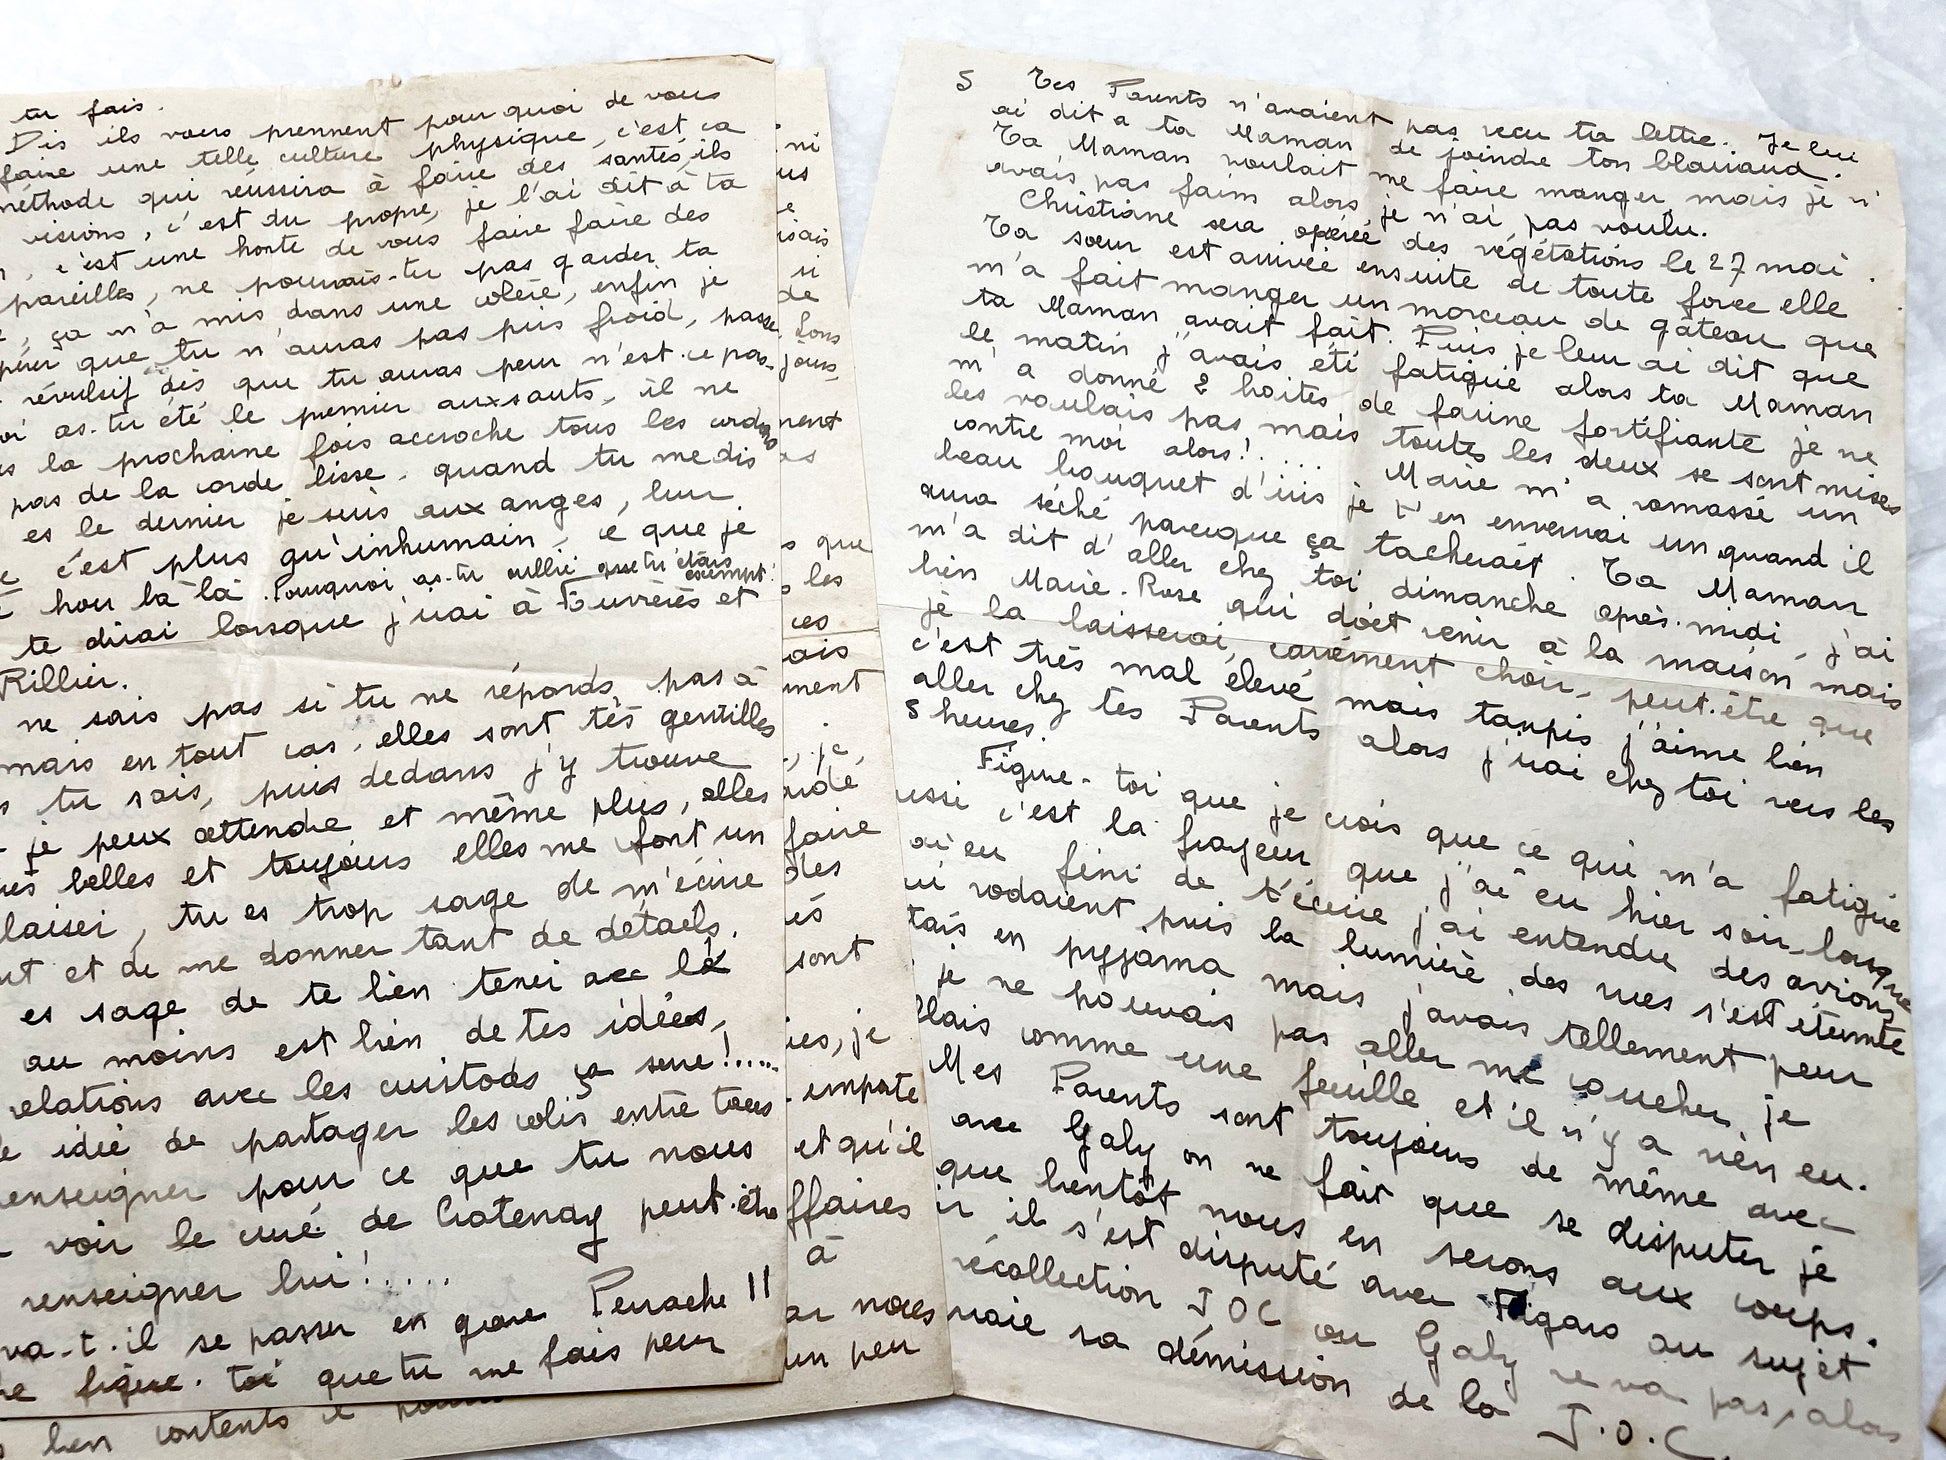 tu fais.
Dis ils vous prennent pour quoi de vous
faire une telle culture physique, c'est ca
méthode qui réussira à faire des santés, ils
visions, c'est du propre, je l'ai dit à ta
, c'est une honte de vous faire faire des
pareilles, ne pouvais-tu pas garder ta
, ça m'a mis dans une colère, enfin je
que tu n'auras pas pris froid, passe
révulsif dès que tu auras peur n'est-ce pas.
as-tu été le premier aux sauts, il ne
la prochaine fois accroche tous les
pas de la corde lisse, quand tu me dis
es le dernier je suis aux anges, leur
c'est plus qu'inhumain, ce que je
hou là là. Pourquoi as-tu oublié que tu étais exempt!
te dirai lorsque j'irai à et
Rillier.
ne sais pas si tu ne réponds pas à
mais en tout cas, elles sont très gentilles
tu sais, puis dedans j'y trouve
je peux attendre et même plus, elles
belles et toujours elles me font un
laisir, tu es trop sage de m'écrire
et de me donner tant de détails,
es sage de te bien tenir avec la
au moins est bien de tes idées,
relations avec les cuistods ça sert!.....
idée de partager les colis entre tous
enseigner pour ce que tu nous
voir le curé de Chatenay peut-être
renseigner lui!.....
va-t-il se passer en gare Perrache !!
figure-toi que tu me fais peur
bien contents
ni
us
isais
si
de
jours
nent
as
que
les
ces
ais
ment
, je
faire
des
sont
ies, je
importe
et qu'il
ffaires
à
nous
un peu
5 Tes Parents n'avaient pas recu ta lettre. Je lui
ai dit a ta Maman de joindre ton blaireau.
Ta Maman voulait me faire manger mais je n'
avais pas faim alors je n'ai pas voulu.
Christiane sera opérée des végétations le 27 mai.
Ta soeur est arrivée ensuite de toute force elle
m'a fait manger un morceau de gâteau que
ta Maman avait fait. Puis je leur ai dit que
le matin j'avais été fatigué alors ta Maman
m'a donné 2 boîtes de farine fortifiante je ne
les voulais pas mais toutes les deux se sont mises
contre moi alors!.... Marie m'a ramassé un
beau bouquet d'iris je t'en enverrai un quand il
aura séché parceque ça tacherait. Ta Maman
m'a dit d'aller chez toi dimanche après-midi, j'ai
bien Marie-Rose qui doit venir à la maison mais
je la laisserai carément choir, peut-être que
c'est très mal élevé mais tanpis j'aime bien
aller chez tes Parents alors j'irai chez toi vers les
5 heures.
Figure-toi que je crois que ce qui m'a fatigué
ussi c'est la frayeur que j'ai eu hier soir lorsque
ai eu fini de t'écrire j'ai entendu des avions
ui rodaient puis la lumière des rues s'est éteinte
tais en pyjama mais j'avais tellement peur
je ne pouvais pas aller me coucher, je
blais comme une feuille et il n'y a rien eu.
Mes Parents sont toujours de même avec
avec Galy on ne fait que se disputer je
que bientôt nous en serons aux coups.
il s'est disputé avec Figaro au sujet
récollection J O C ou Galy ne va pas, alors
sa démission de la J.O.C.